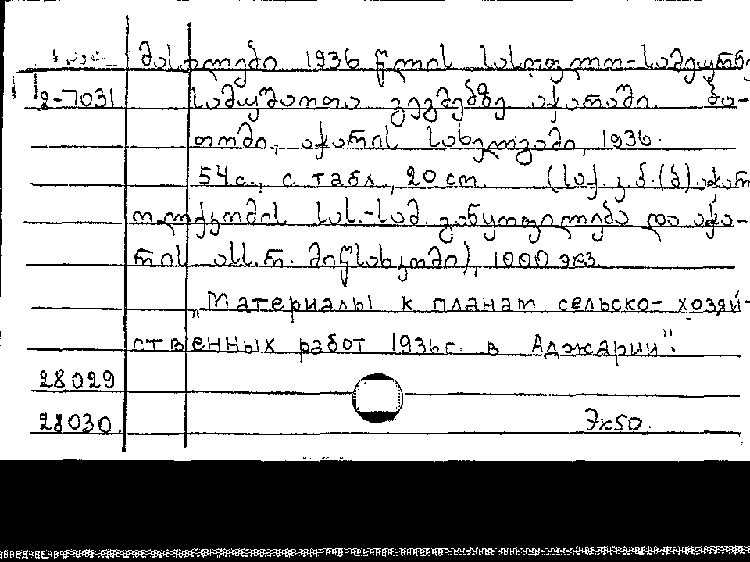 მასალები 1936 წლის სასოფლო-სამეურნე
2-7031 სამუშაოთა გეგმებზე აჭარაში. ბა-
თომი, აჭარის სახელგამი, 1936.
54 с., с табл., 20 cm. (საქ. კ. პ. (ბ). აჭარ
ოლქკომის სას.-სამ. განყოფილება და აჭა-
რის ასს.რ. მიწსახკომი), 1000 экз
„Материалы к планам сельско-хозяй-
ственных работ 1936 г. в Аджарии".
28029
28030. Эк50.